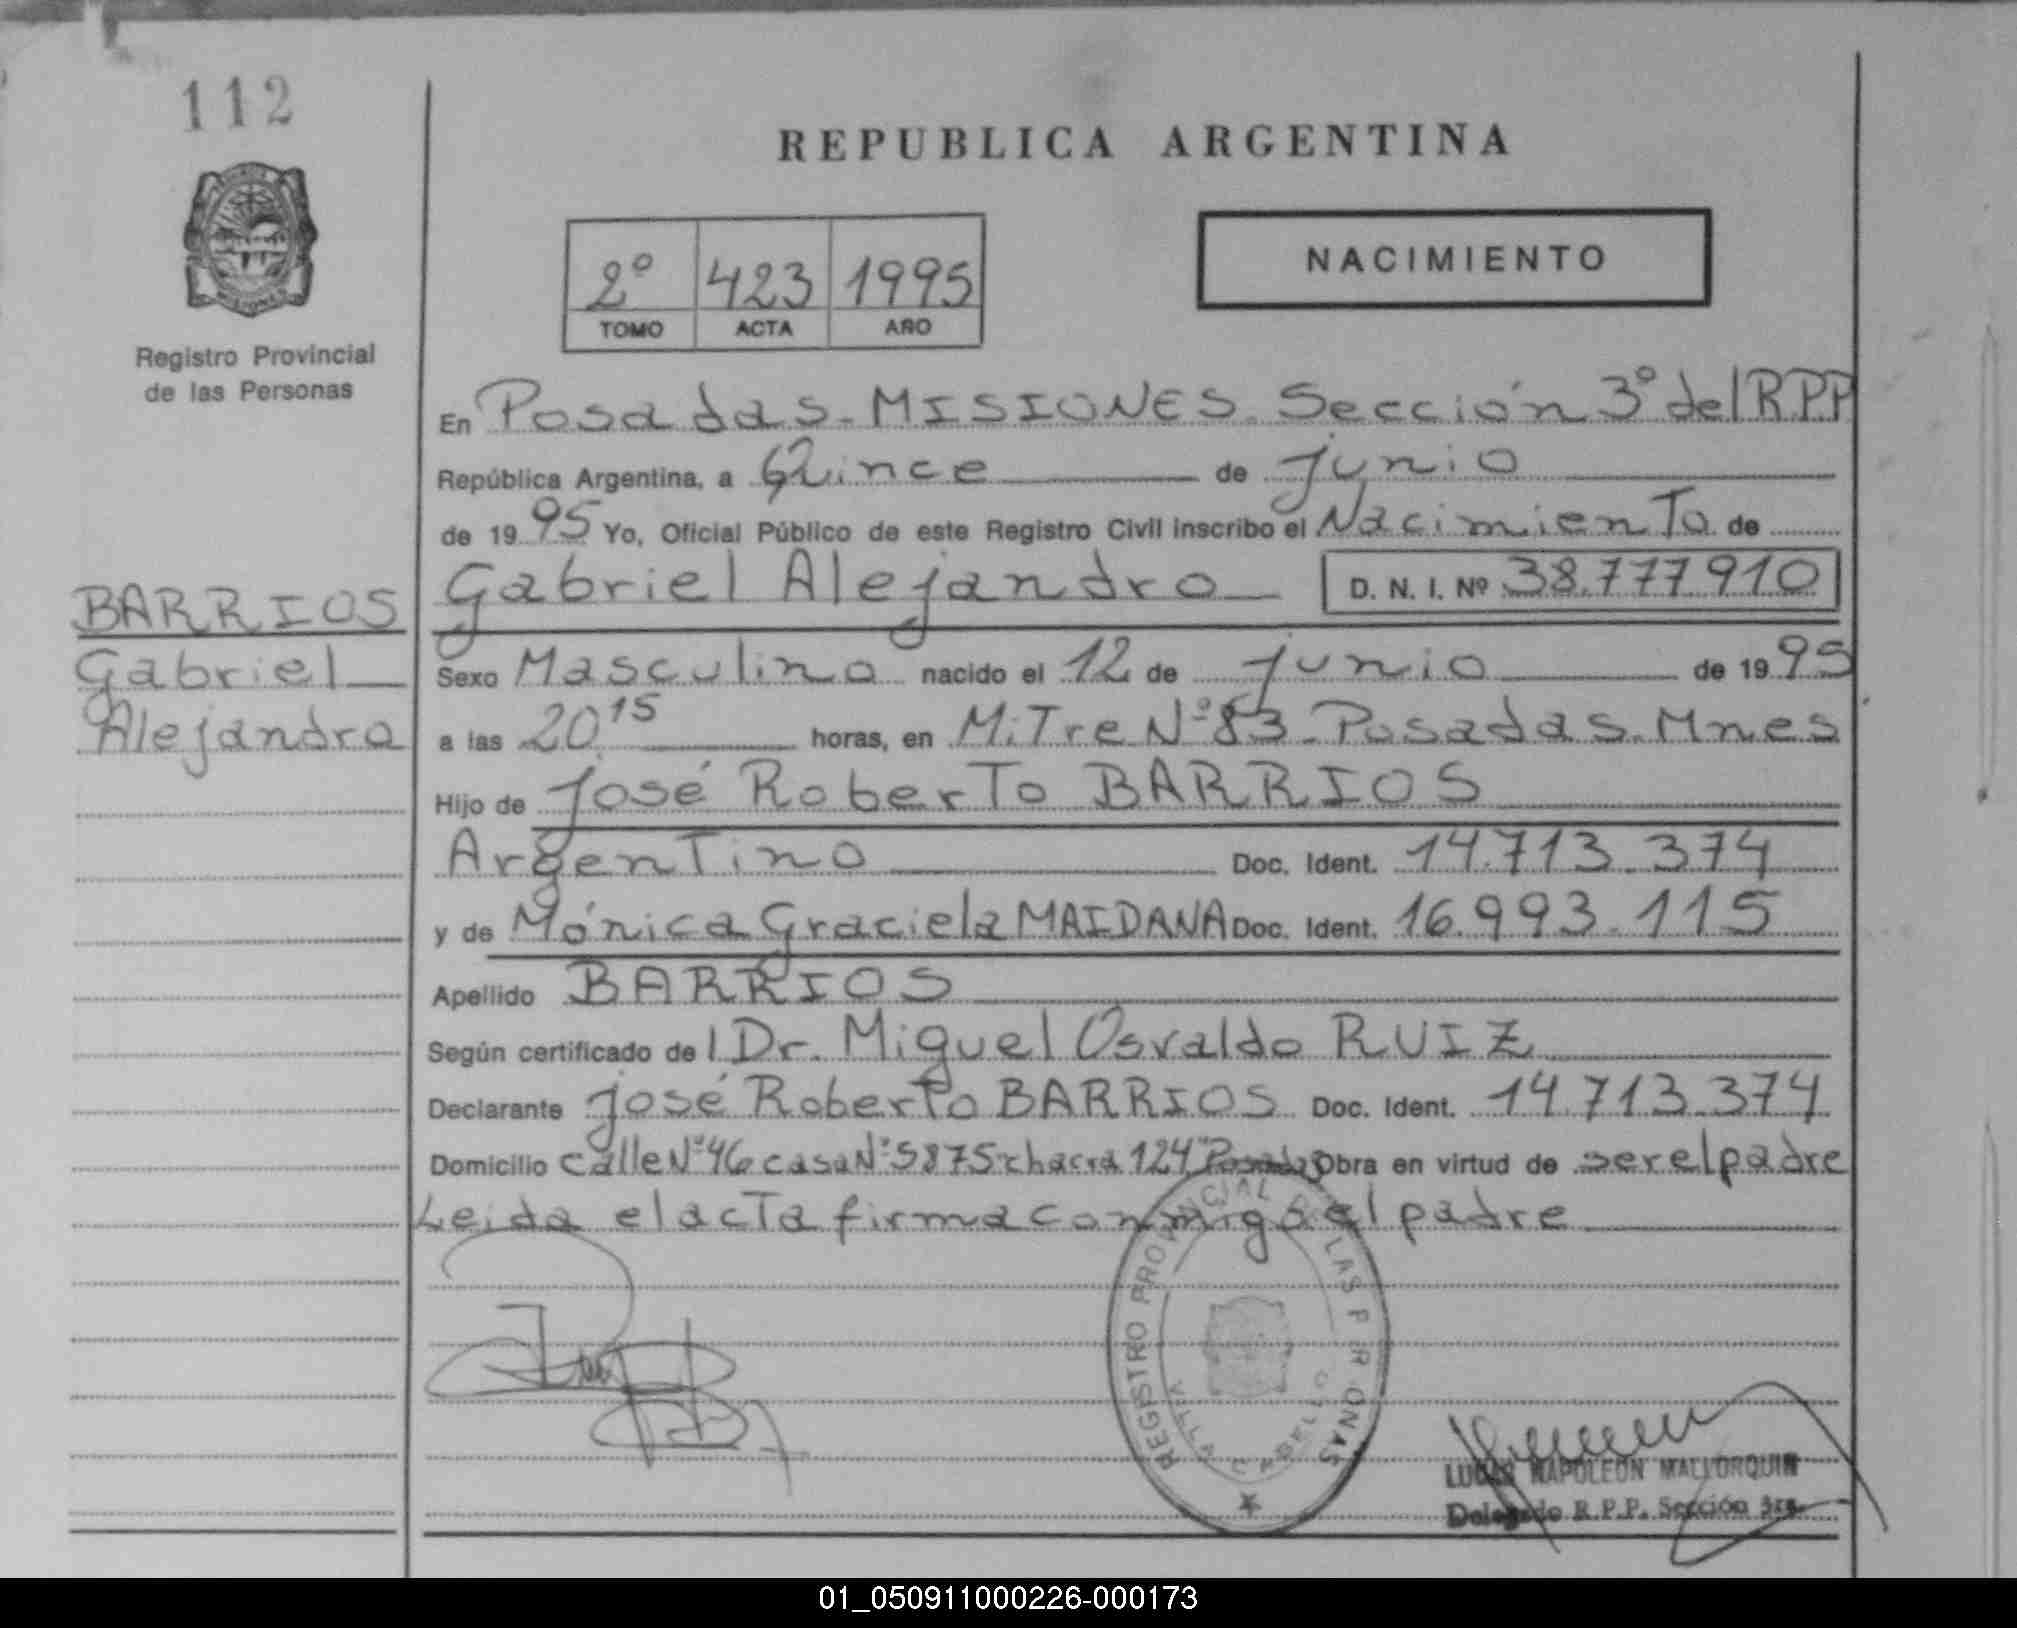 112
REPUBLICA ARGENTINA
NACIMIENTO
2º 423 1995
TOMO ACTA AÑO
Registro Provincial
de las Personas
En Posadas - MISIONES - Sección 3º del R.P.P
República Argentina, a Quince de junio
de 1995 Yo, Oficial Público de este Registro Civil inscribo el Nacimiento de
BARRIOS
Gabriel
Alejandro
Gabriel Alejandro D. N. I. Nº 38.777.910
Sexo Masculino nacido el 12 de junio de 1995
a las 20.15 horas, en Mitre Nº 83 - Posadas - Mnes
Hijo de José Roberto BARRIOS
Argentino Doc. Ident. 14.713.374
y de Mónica Graciela MAIDANA Doc. Ident. 16.993.115
Apellido BARRIOS
Según certificado del Dr. Miguel Osvaldo RUIZ
Declarante José Roberto BARRIOS Doc. Ident. 14.713.374
Domicilio calle Nº 46 casa Nº 5875 - chacra 124 - Posadas Obra en virtud de ser el padre
Leida el acta firma conmigo el padre
REGISTRO PROVINCIAL DE LAS PERSONAS
VILLA CABELLO
LUCAS NAPOLEON MALLORQUIN
Delegado R.P.P. Sección 3ra.
01_050911000226-000173